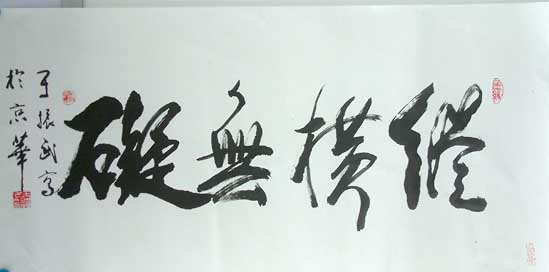 縱橫無礙
于振武寫
於京華